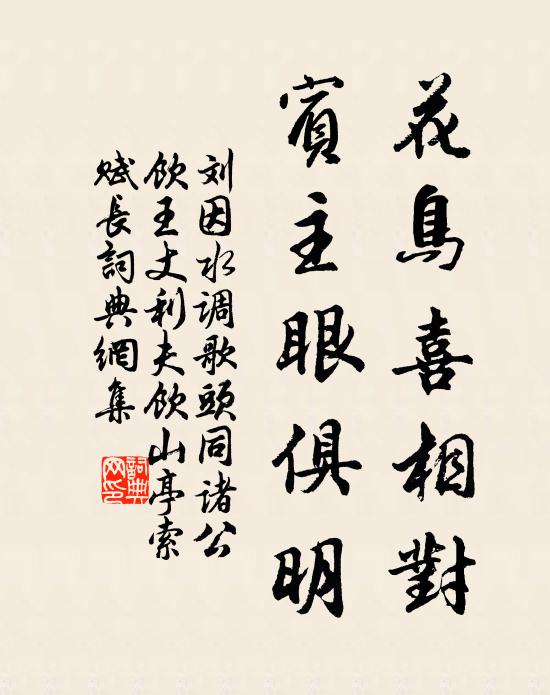 花鳥喜相對
賓主眼俱明
刘因水调歌頭同诸公
饮王丈利夫饮山亭索
赋長詞典網集
詞典
网印